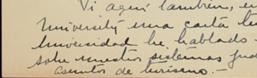 Vi aquí también, en
University una carta
Universidad he hablado
sobre nuestros sistemas
asuntos de turismo. -